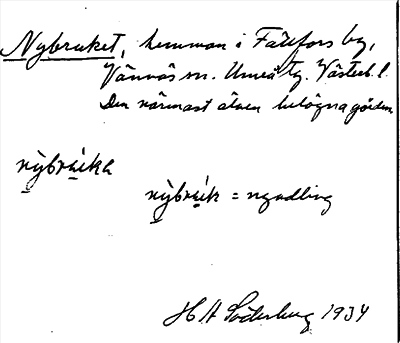 Nybruket, hemman i Fällfors by,
Vännäs sn. Umeå tg. Västerb. l.
Den närmast älven belägna gården
nỳbrúika
nỳbrúik = nyodling
H A Söderberg 1934